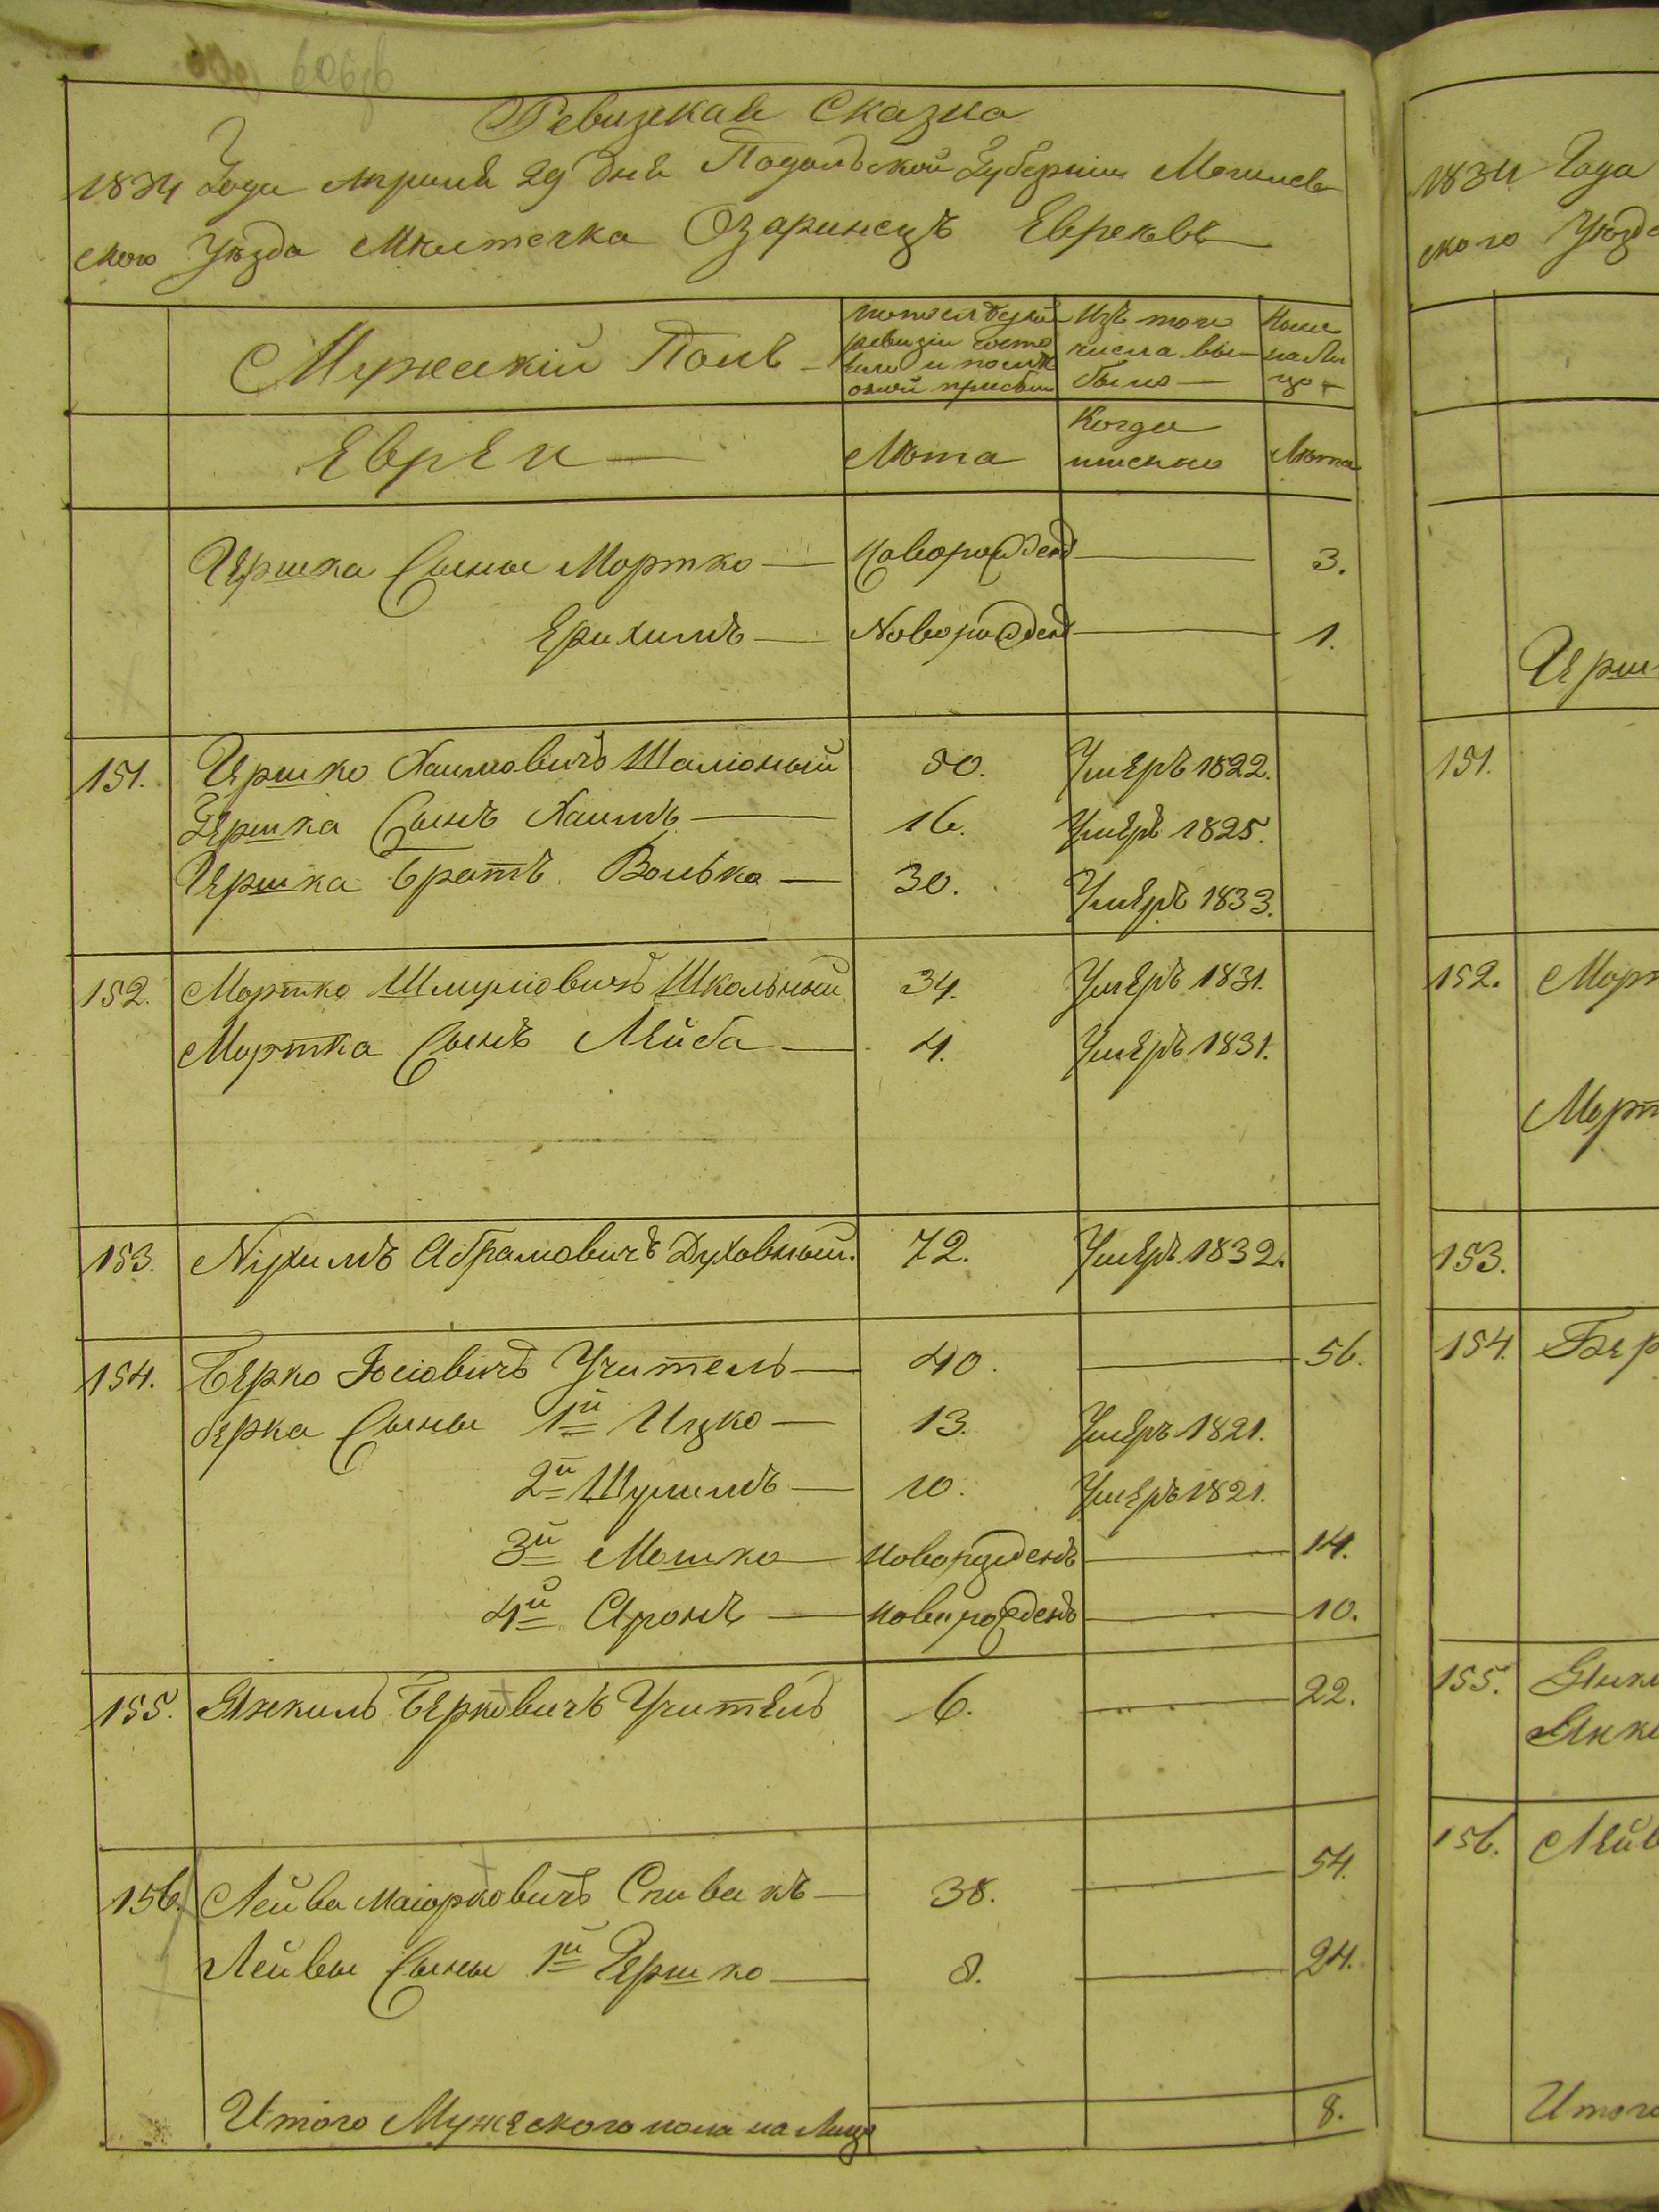 Ревизская Сказка
1834 Года Апреля 29 дня Подольской Губернии Могилев
ского Уезда Мистечка Озаринецъ Евреевъ
Мужеский Полъ
По последней ревизии состояло и после оной прибыло
Изъ того числа выбыло
Ныне на лицо
Евреи
Лета
Когда именно
Лета
Иершка Сыны Мортко Новорожденъ 3.
Ерихимъ Новорожденъ 1.
151. Иершко Хаимовичъ Шаліоный 50. Умеръ 1822.
Гершка Сынъ Хаимъ 16. Умеръ 1825.
Иершка братъ Волько 30. Умеръ 1833.
152. Мортко Шмуліовичъ Школьный 34. Умеръ 1831.
Мортка Сынъ Лейба 4. Умеръ 1831.
153. Нухимъ Абрамовичъ Духовный. 72. Умеръ 1832.
154. Берко Іосіовичъ Учитель 40. 56.
Берка Сыны 1й Ицко 13. Умеръ 1821.
2й Шулимъ 10. Умеръ 1821.
3й Мошко Новорожденъ 14.
4й Аронъ Новорожденъ 10.
155. Янкиль Берковичъ Учитель 6. 22.
156. Лейва Маіорковичъ Спивакъ 38. 54.
Лейвы Сыны 1й Гершко 8. 24.
Итого Мужеского пола на Лицо 8.
1834 Года
ского Уезда
Иерш
151.
152. Морт
Морт
153.
154. Бер
155. Янки
Янки
156. Лейв
Итого